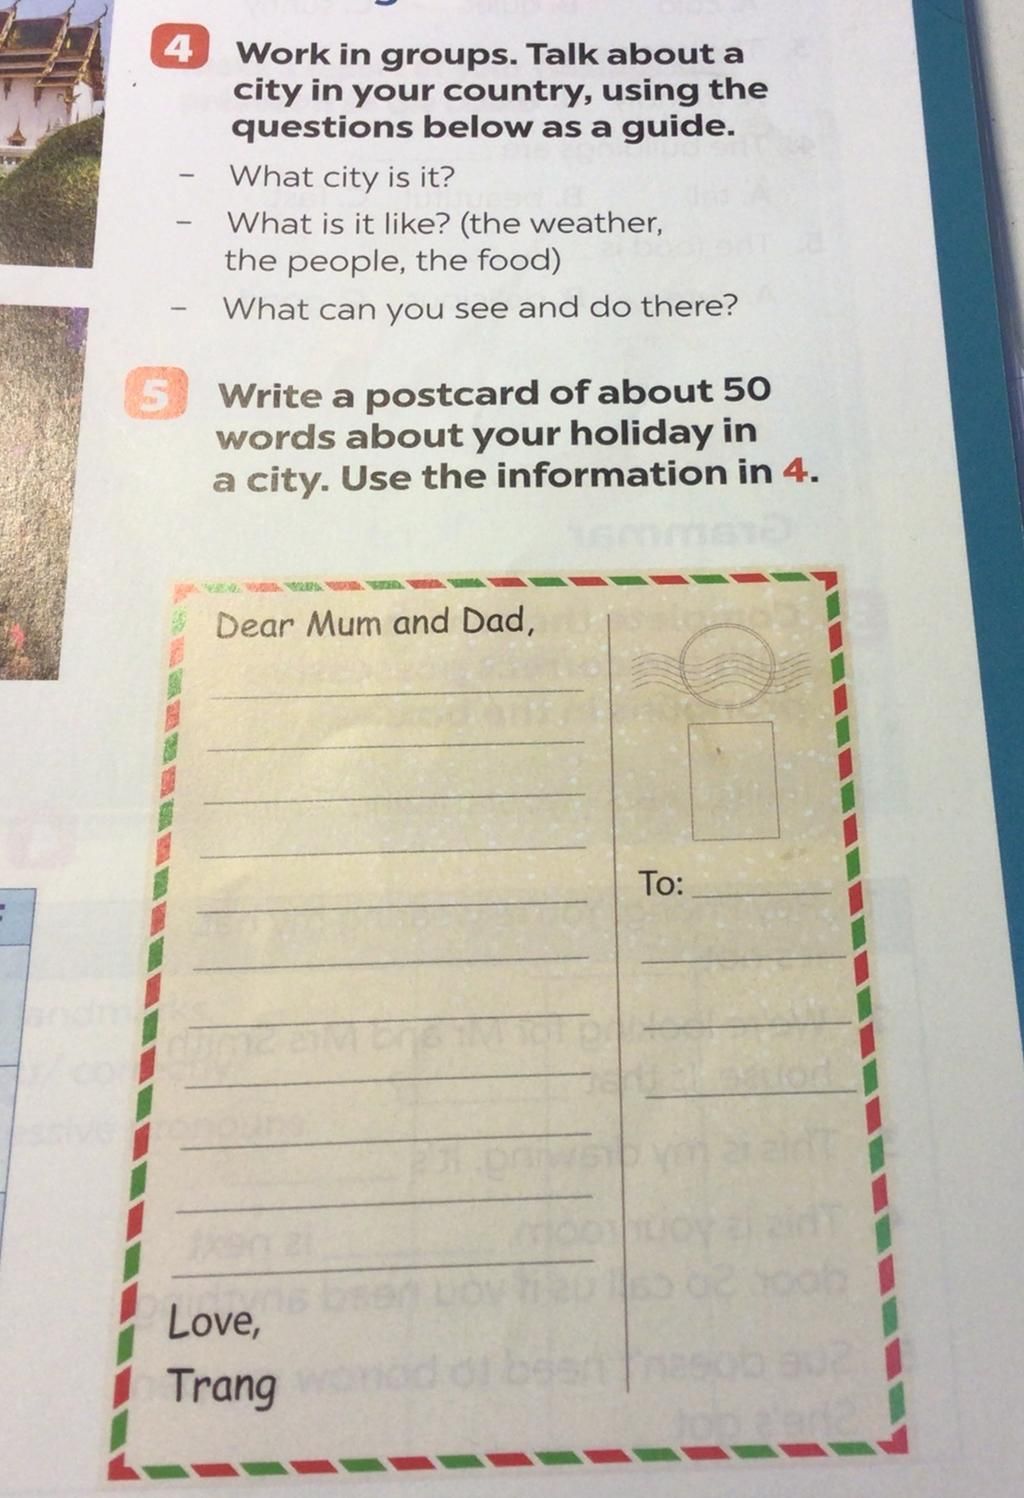 4 Work in groups. Talk about a
city in your country, using the
questions below as a guide.
– What city is it?
– What is it like? (the weather,
the people, the food)
– What can you see and do there?
5 Write a postcard of about 50
words about your holiday in
a city. Use the information in 4.
Dear Mum and Dad,
To:
Love,
Trang